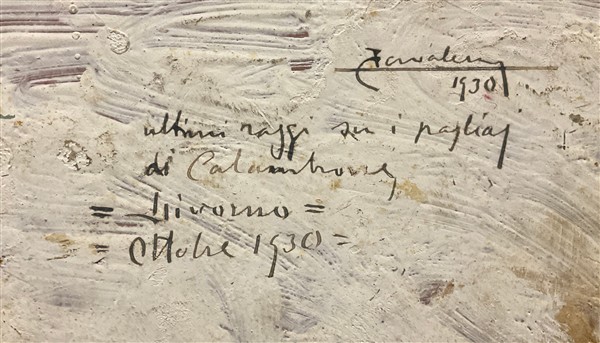 1930
ultimi raggi su i pagliaj
di Calambrone
= Livorno =
= Ottobre 1930 =